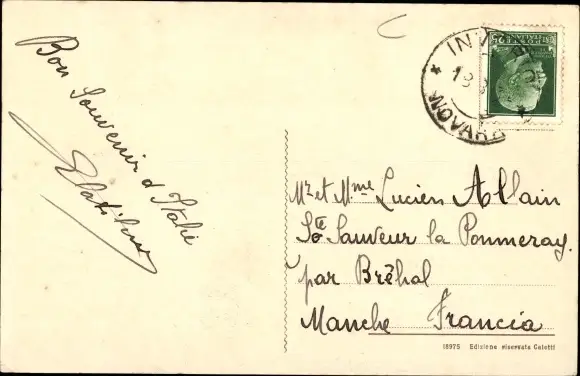 Bon Souvenir d'Italie
INT
NOVARA
POSTE
ITALIANE
Mr et M.me Lucien Allain
Ste Sauveur la Pommeray.
par Bréhal
Manche Francia
18975 Edizione riservata Calotti